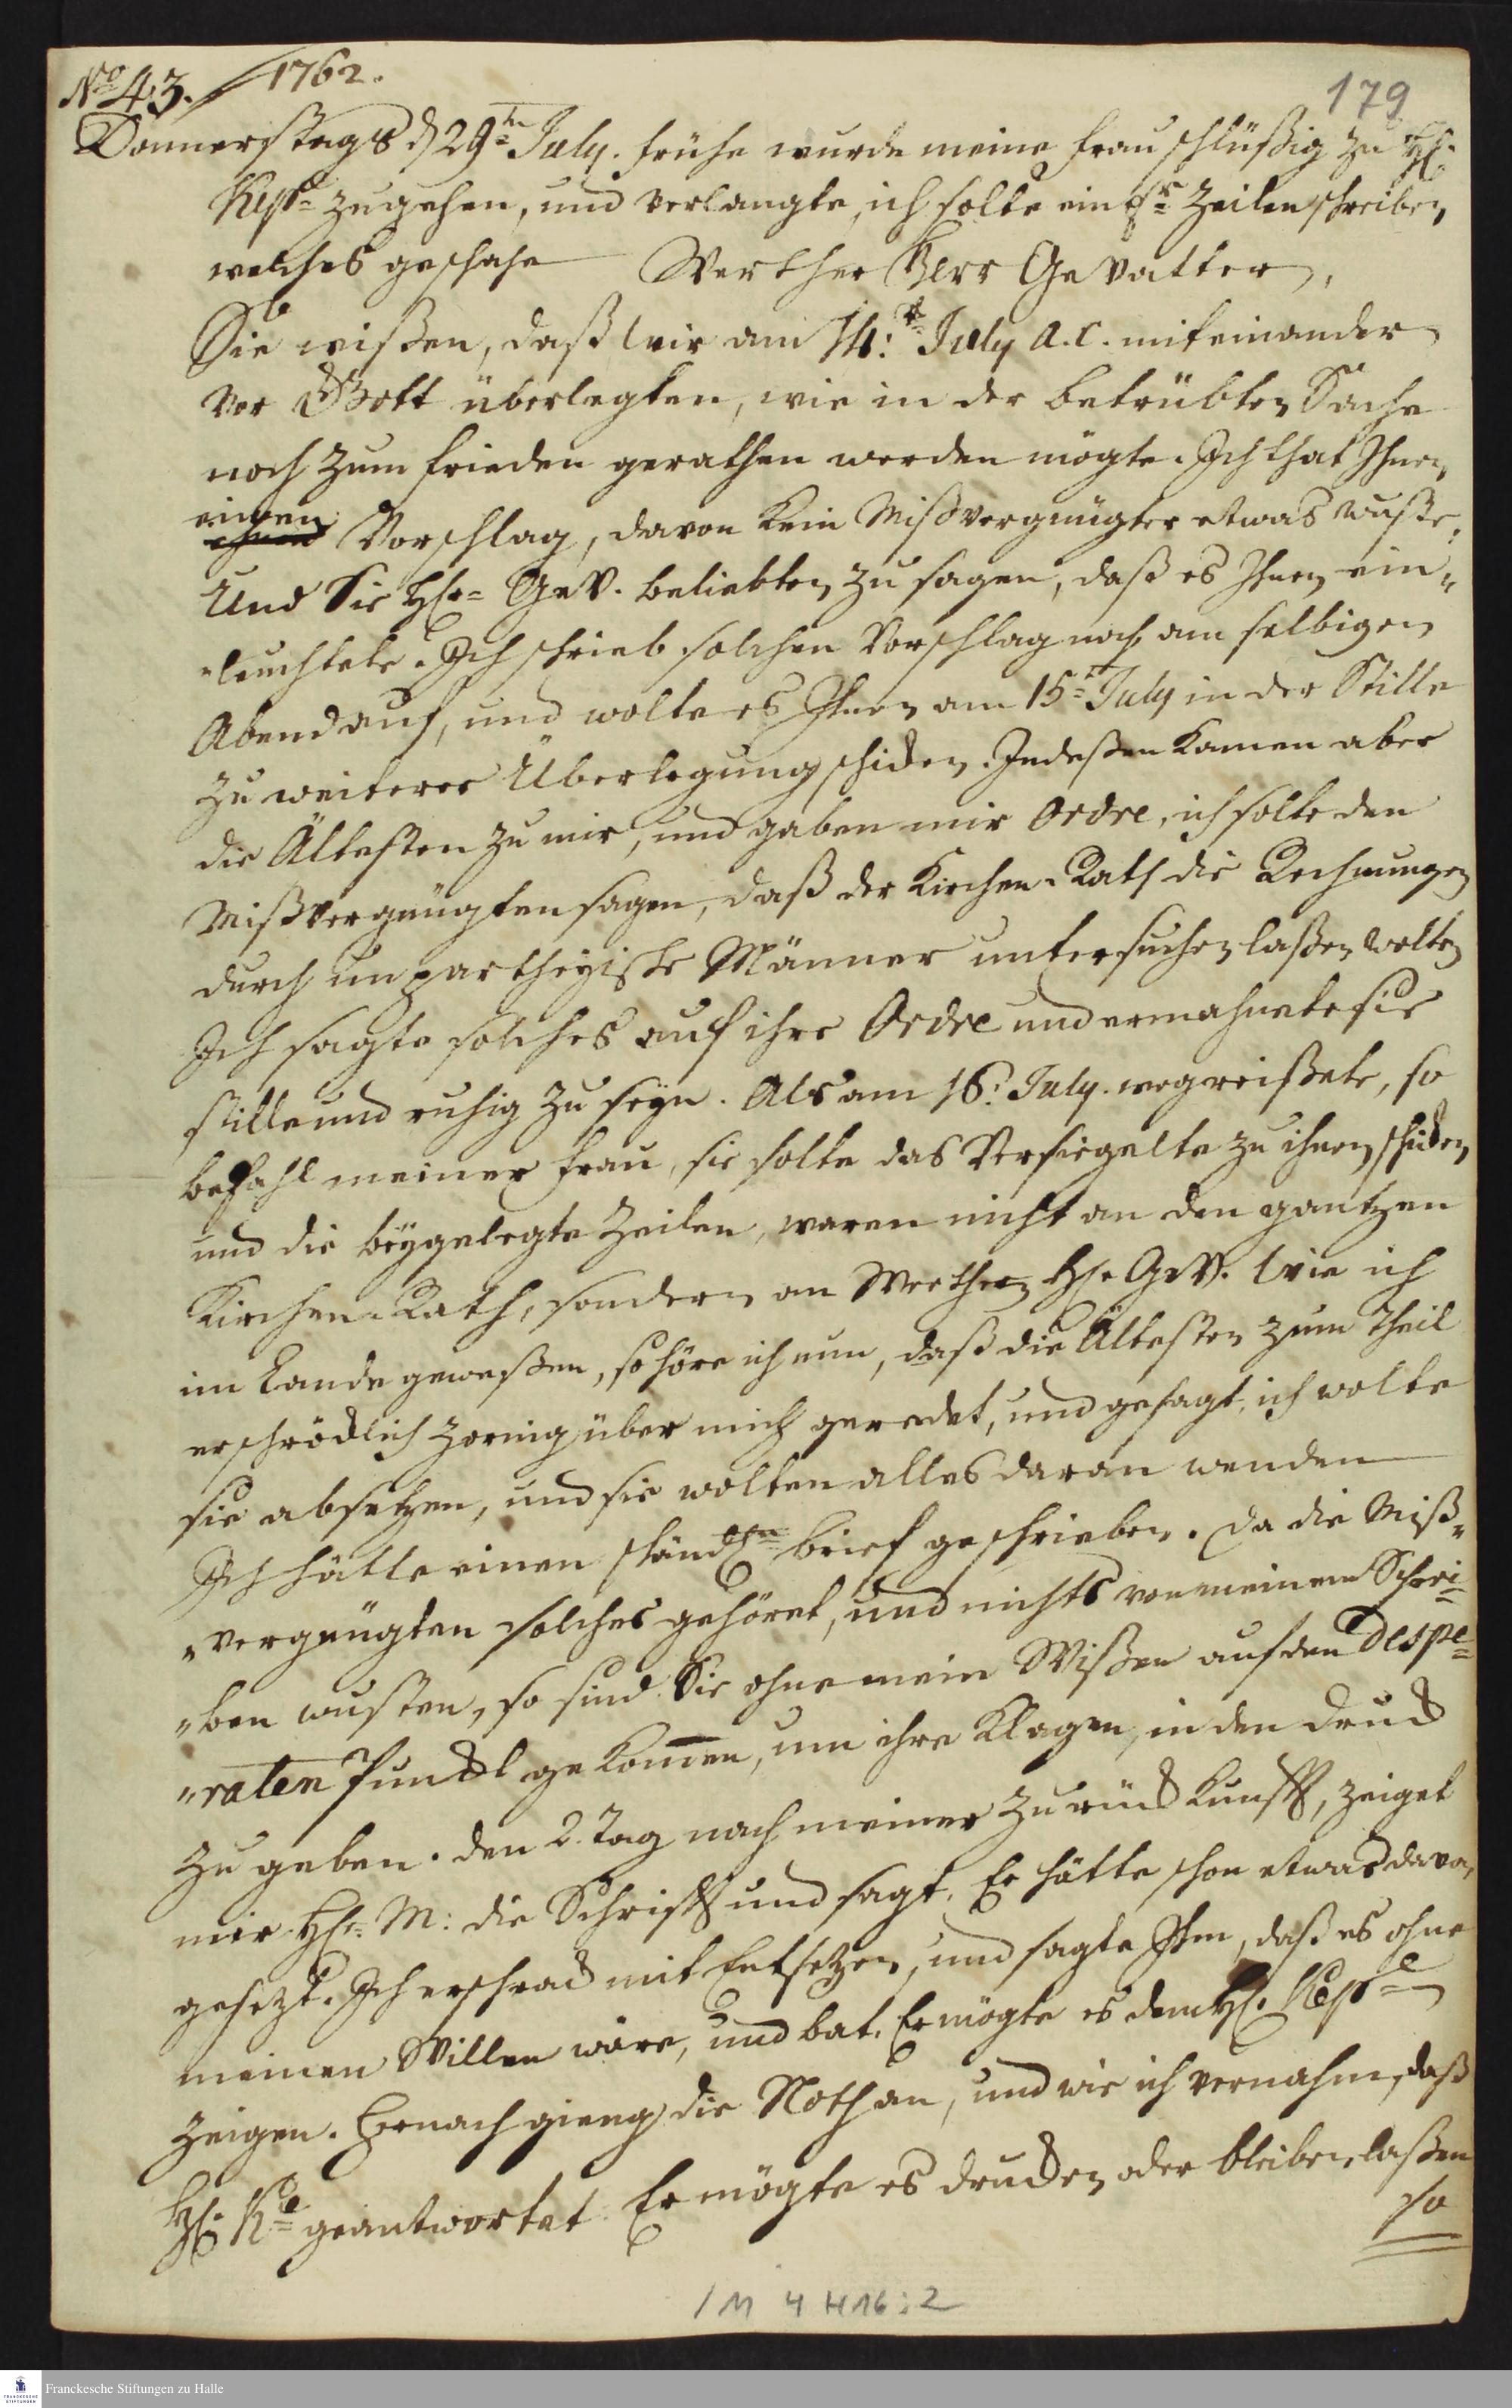 No 43. 1762.
179
Donnerstags d 29ten July. frühe wurde meine Frau schlüßig zu H:
Kepl zugehen, und verlangte, ich solte ein Zeilen schreiben,
welches geschahe Werther Herr Gevatter,
Sie wißen, daß wir am 14:t July a. c. miteinander
vor Gott überlegten, wie in der betrübten Sache
noch zum frieden gerathen werden mögte. Ich that Ihnen
einen Vorschlag, davon kein Mißvergnügter etwas wuste.
Und Sie Hr Gev. beliebten zu sagen, daß es Ihnen ein„
„leuchtete. Ich schrieb solchen Vorschlag noch am selbigen
Abend auf, und wolte es Ihnen am 15t July in der Stille
zu weiterer Überlegung schicken. Indeßen kamen aber
die Ältesten zu mir, und gaben mir Ordre, ich solte den
Mißvergnügten sagen, daß der Kirchen-Rath die Rechnungen
durch unpartheyische Männer untersuchen laßen wolten
Ich sagte solches auf ihre Ordre und ermahnete sie
stille und ruhig zu seyn. Als am 16. July. wegreißete, so
befahl meiner Frau, sie solte das Versiegelte zu ihnen schicken,
und die beygelegte Zeilen, waren nicht an den gantzen
Kirchen-Rath, sondern an Werthen H. Gev. Wie ich
im Lande geweßen, so höre ich nun, daß die Ältesten zum Theil
erschröcklich zornig über mich geredet, und gesagt, ich wolte
sie absetzen, und sie wolten alles daran wenden
Ich hätte einen schändln brief geschrieben. Da die Miß„
„vergnügten solches gehöret, und nichts von meinem Schrei=
„ben wusten, so sind Sie ohne mein Wißen auf den despe=
„raten Punckt gekomen, um ihre Klagen, in den druck
zu geben. Den 2. Tag nach meiner Zurückkunfft, zeiget
mir Hr M: die Schrifft und sagt, Er hätte schon etwas davon
gesezt. Ich erschrack mit Entsetzen, und sagte Ihm, daß es ohne
meinen Willen wäre, und bat, Er mögte es dem H. Kepl
zeigen. Hernach gieng die Noth an, und wie ich vernahm, daß
H. Kl geantwortet Er mögte es drucken oder bleiben laßen
so
1 M 4 H 16 : 2
Franckesche Stiftungen zu Halle